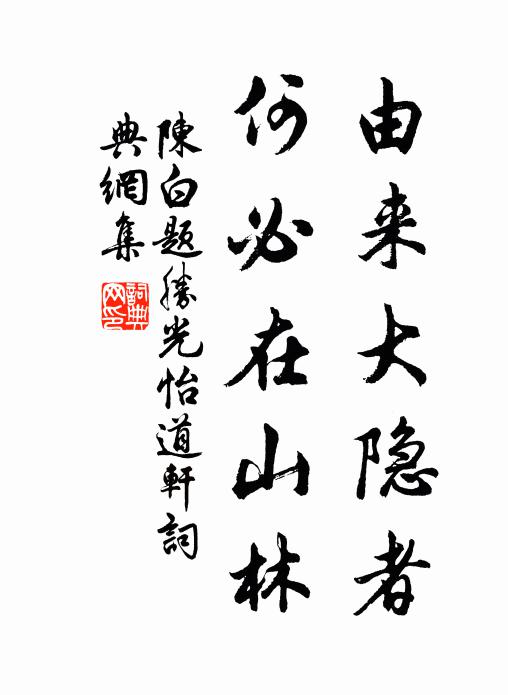 由来大隐者
何必在山林
陳白題勝光怡道軒詞
典網集
詞典
网印